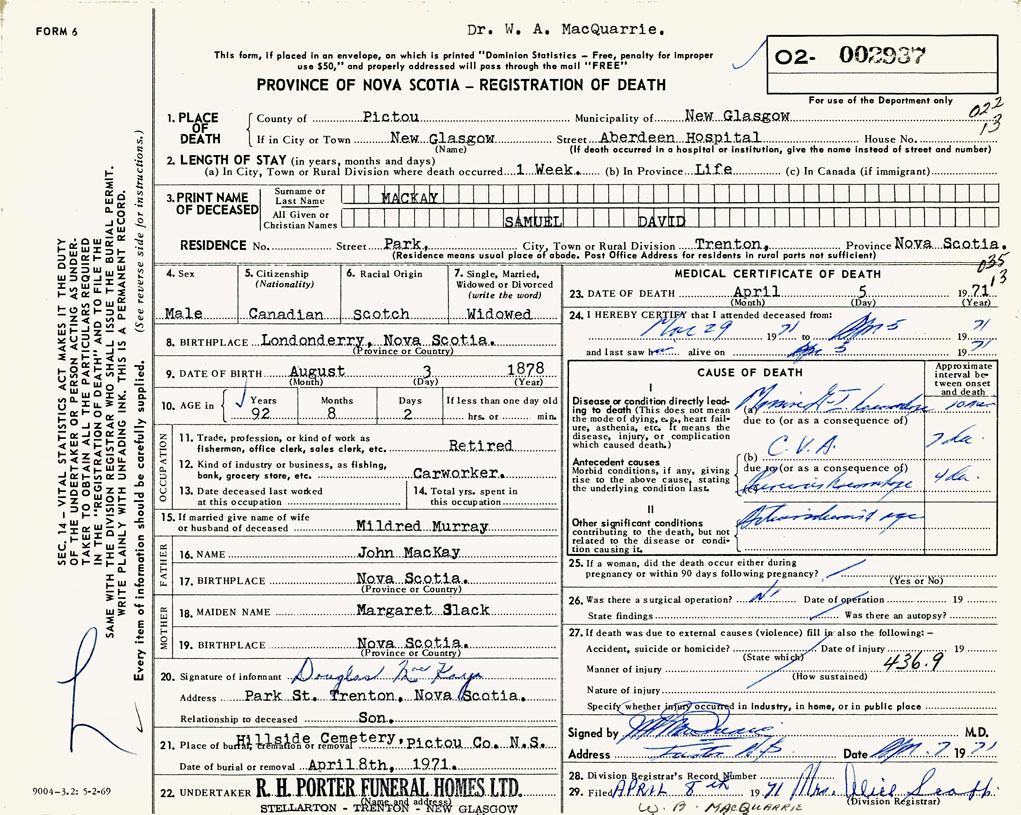 FORM 6
Dr. W. A. MacQuarrie.
This form, if placed in an envelope, on which is printed "Dominion Statistics – Free, penalty for improper
use $50," and properly addressed will pass through the mail "FREE"
PROVINCE OF NOVA SCOTIA – REGISTRATION OF DEATH
O2- 002937
For use of the Department only
022
13
1. PLACE OF DEATH
County of Pictou Municipality of New Glasgow
If in City or Town New Glasgow Street Aberdeen Hospital House No.
(Name) (If death occurred in a hospital or institution, give the name instead of street and number)
2. LENGTH OF STAY (in years, months and days)
(a) In City, Town or Rural Division where death occurred 1 Week. (b) In Province Life (c) In Canada (if immigrant)
3. PRINT NAME OF DECEASED
Surname or Last Name MACKAY
All Given or Christian Names SAMUEL DAVID
RESIDENCE No. Street Park, City, Town or Rural Division Trenton, Province Nova Scotia.
(Residence means usual place of abode. Post Office Address for residents in rural parts not sufficient)
035
13
4. Sex
Male
5. Citizenship
(Nationality)
Canadian
6. Racial Origin
Scotch
7. Single, Married,
Widowed or Divorced
(write the word)
Widowed
8. BIRTHPLACE Londonderry, Nova Scotia.
(Province or Country)
9. DATE OF BIRTH August 3 1878
(Month) (Day) (Year)
10. AGE in
Years Months Days If less than one day old
92 8 2 hrs. or min.
OCCUPATION
11. Trade, profession, or kind of work as
fisherman, office clerk, sales clerk, etc. Retired
12. Kind of industry or business, as fishing,
bank, grocery store, etc. Carworker.
13. Date deceased last worked
at this occupation
14. Total yrs. spent in
this occupation
15. If married give name of wife
or husband of deceased Mildred Murray
FATHER
16. NAME John MacKay
17. BIRTHPLACE Nova Scotia.
(Province or Country)
MOTHER
18. MAIDEN NAME Margaret Slack
19. BIRTHPLACE Nova Scotia.
(Province or Country)
20. Signature of informant Douglas MacKay
Address Park St. Trenton, Nova Scotia.
Relationship to deceased Son.
21. Place of burial, cremation or removal Hillside Cemetery, Pictou Co. N.S.
Date of burial or removal April 8th, 1971.
22. UNDERTAKER R. H. PORTER FUNERAL HOMES LTD.
(Name and address)
STELLARTON - TRENTON - NEW GLASGOW
MEDICAL CERTIFICATE OF DEATH
23. DATE OF DEATH April 5 1971
(Month) (Day) (Year)
24. I HEREBY CERTIFY that I attended deceased from:
Mar 29 1971 to Apr 5 1971
and last saw him alive on Apr 5 1971
CAUSE OF DEATH
Approximate
interval be-
tween onset
and death
I
Disease or condition directly lead-
ing to death (This does not mean
the mode of dying, e.g., heart fail-
ure, asthenia, etc. It means the
disease, injury, or complication
which caused death.)
(a)
due to (or as a consequence of)
(b) C.V.A.
due to (or as a consequence of)
(c)
Antecedent causes
Morbid conditions, if any, giving
rise to the above cause, stating
the underlying condition last.
II
Other significant conditions
contributing to the death, but not
related to the disease or condi-
tion causing it.
25. If a woman, did the death occur either during
pregnancy or within 90 days following pregnancy?
(Yes or No)
26. Was there a surgical operation? No Date of operation 19
State findings Was there an autopsy?
27. If death was due to external causes (violence) fill in also the following: –
Accident, suicide or homicide? Date of injury 19
(State which)
Manner of injury 436.9
(How sustained)
Nature of injury
Specify whether injury occurred in industry, in home, or in public place
Signed by M.D.
Address Date Apr. 7 1971
28. Division Registrar's Record Number
29. Filed APRIL 8th 1971 Mrs. Alice
(Division Registrar)
W. A. MACQUARRIE
SEC. 14 – VITAL STATISTICS ACT MAKES IT THE DUTY
OF THE UNDERTAKER OR PERSON ACTING AS UNDER-
TAKER TO OBTAIN ALL THE PARTICULARS REQUIRED
IN THE "REGISTRATION OF DEATH" AND TO FILE THE
SAME WITH THE DIVISION REGISTRAR WHO SHALL ISSUE THE BURIAL PERMIT.
WRITE PLAINLY WITH UNFADING INK. THIS IS A PERMANENT RECORD.
Every item of information should be carefully supplied. (See reverse side for instructions.)
9004-3.2: 5-2-69